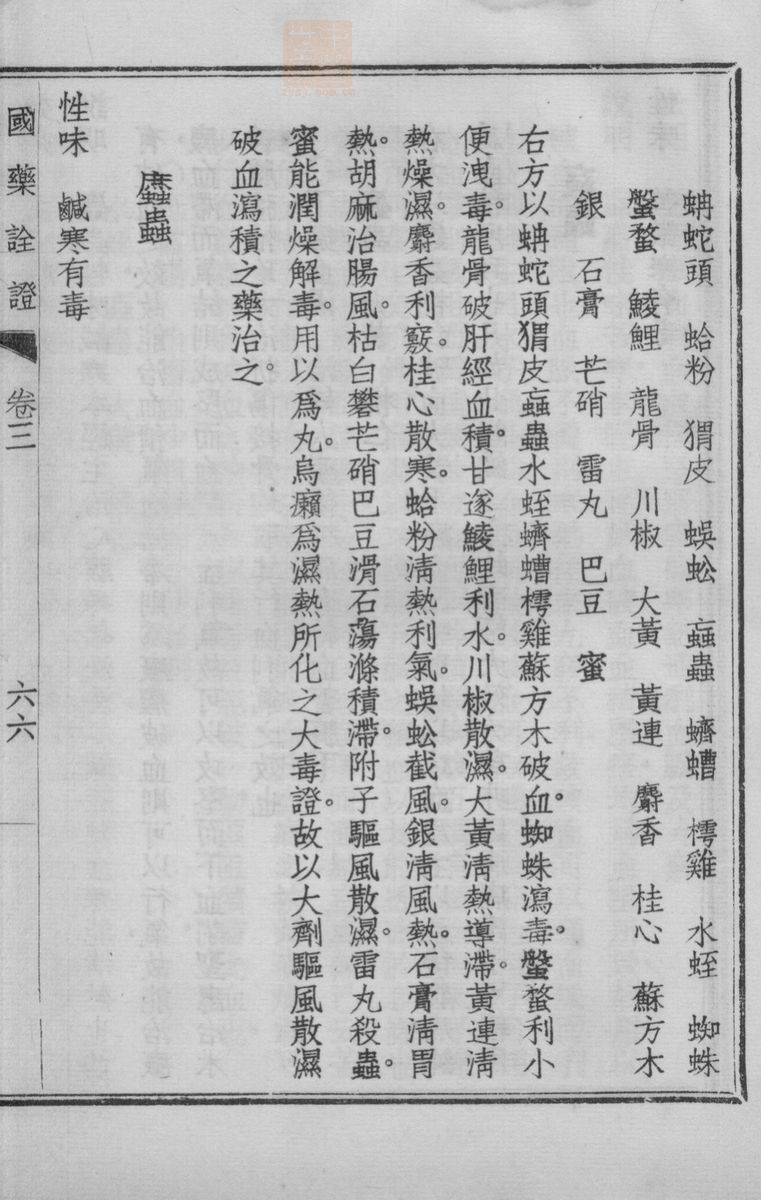 蚺蛇頭　蛤粉　猬皮　蜈蚣　蝱蟲　蠐螬　樗雞　水蛭　蜘蛛
盤蝥　鯪鯉　龍骨　川椒　大黃　黃連　麝香　桂心　蘇方木
銀　石膏　芒硝　雷丸　巴豆　蜜
右方以蚺蛇頭猬皮蝱蟲水蛭蠐螬樗雞蘇方木破血。蜘蛛瀉毒。盤蝥利小
便洩毒。龍骨破肝經血積。甘遂鯪鯉利水。川椒散濕。大黃淸熱導滯。黃連淸
熱燥濕。麝香利竅。桂心散寒。蛤粉淸熱利氣。蜈蚣截風。銀淸風熱。石膏淸胃
熱。胡麻治腸風。枯白礬芒硝巴豆滑石蕩滌積滯。附子驅風散濕。雷丸殺蟲。
蜜能潤燥解毒。用以爲丸。烏癩爲濕熱所化之大毒證。故以大劑驅風散濕
破血瀉積之藥治之。
䗪蟲
性味　鹹寒有毒
國藥詮證　卷三　六六